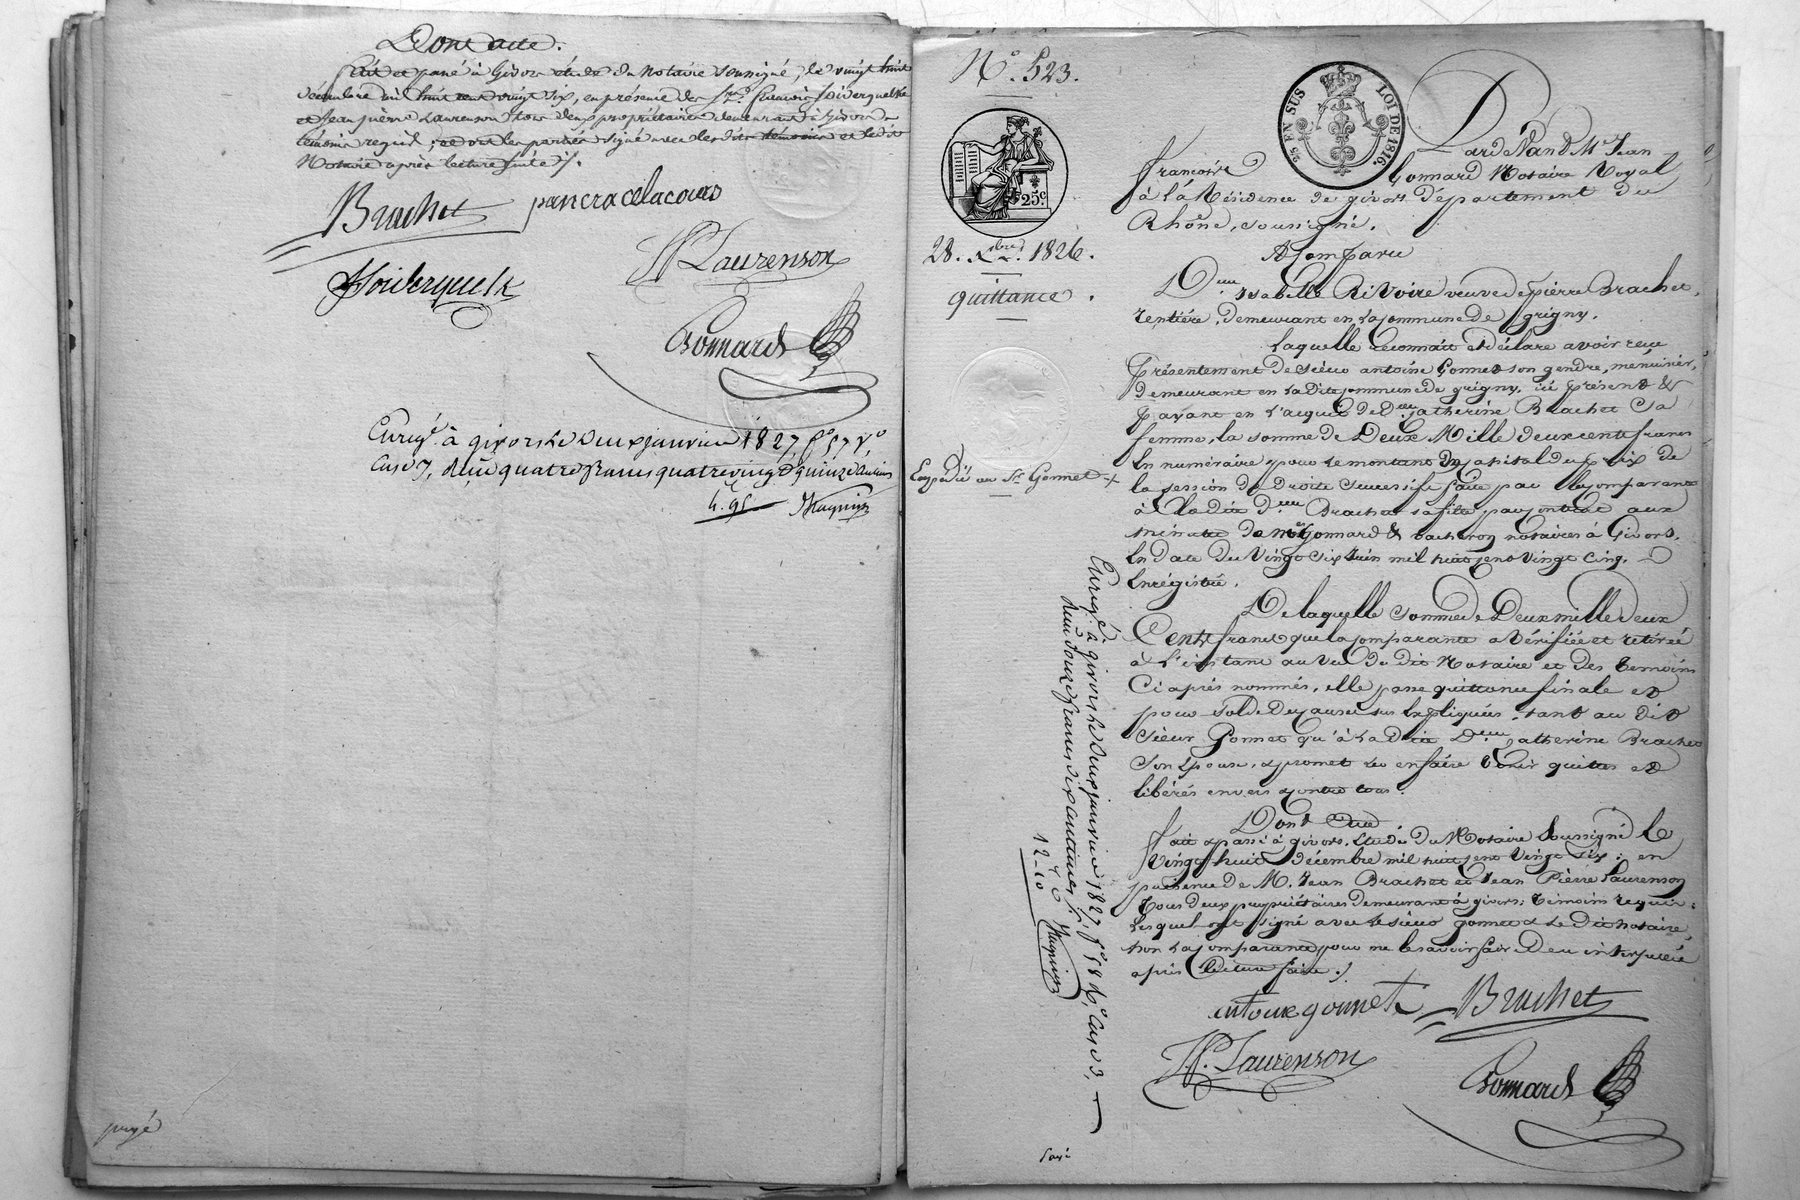 Dont acte.
fait et passé à Givors étude du Notaire soussigné, le vingt huit
décembre mil huit cent vingt six, en présence des Srs.
et Jean pierre Laurenson tous deux propriétaires demeurant à Givors
témoins requis; ce ont les parties signé avec les dits témoins et le dit
Notaire après lecture faite ./.
Brachet pancrace lacours
JP Laurenson
Gonnard
Enregé. à givors le deux janvier 1827, fo. 57 Vo.
Case 7, reçu quatre francs quatre vingt quinze centimes
4. 95
payé
No. 523.
25 c
28. Xbre. 1826.
quittance.
Expédié au Sr. Gonnet +
Enregé. à givors le deux janvier 1827, fo. 58 Ro. Case 3,
reçu douze francs dix centimes
12-10
25 EN SUS LOI DE 1816.
Pardevant Me. Jean
françois Gonnard Notaire Royal
à la Résidence de givors département du
Rhône, soussigné.
A Comparu
Dme. Isabelle Rivoire veuve de pierre Brachet,
rentière, demeurant en la commune de grigny.
Laquelle reconnait et déclare avoir reçu
présentement de sieur antoine Gonnet son gendre, menuisier,
demeurant en la dite commune de grigny, ici présent &
payant en l'acquit de Dme. Catherine Brachet sa
femme, la somme de Deux Mille deux cents francs
En numéraire pour le montant du capital du prix de
la cession de Droits successifs faite par la comparante
à la dite dme. Brachet sa fille par contrat aux
minutes de Mes. Gonnard & notaires à Givors,
En date du Vingt six Juin mil huit cent vingt cinq.
Enrégistré.
De laquelle somme de Deux mille deux
Cents francs que la comparante a vérifiée et retirée
à l'instant au vu du dit Notaire et des témoins
Ci après nommés, elle passe quittance finale et
pour solde des causes sus expliquées, tant au dit
Sieur Gonnet qu'à la dite Dme. Catherine Brachet
Son épouse, & promet les en faire tenir quittes et
libérés envers & contre tous.
Dont Acte
fait & passé à givors, étude du Notaire soussigné le
Vingt huit décembre mil huit cent vingt six; en
présence de M. Jean Brachet et Jean Pierre Laurenson
tous deux propriétaires demeurant à givors; témoins requis;
Lesquels ont signé avec le sieur gonnet & le dit notaire,
non la comparante pour ne le savoir faire de ce interpellée
après Lecture faite ./.
antoine gonnet Brachet
JP. Laurenson
Gonnard